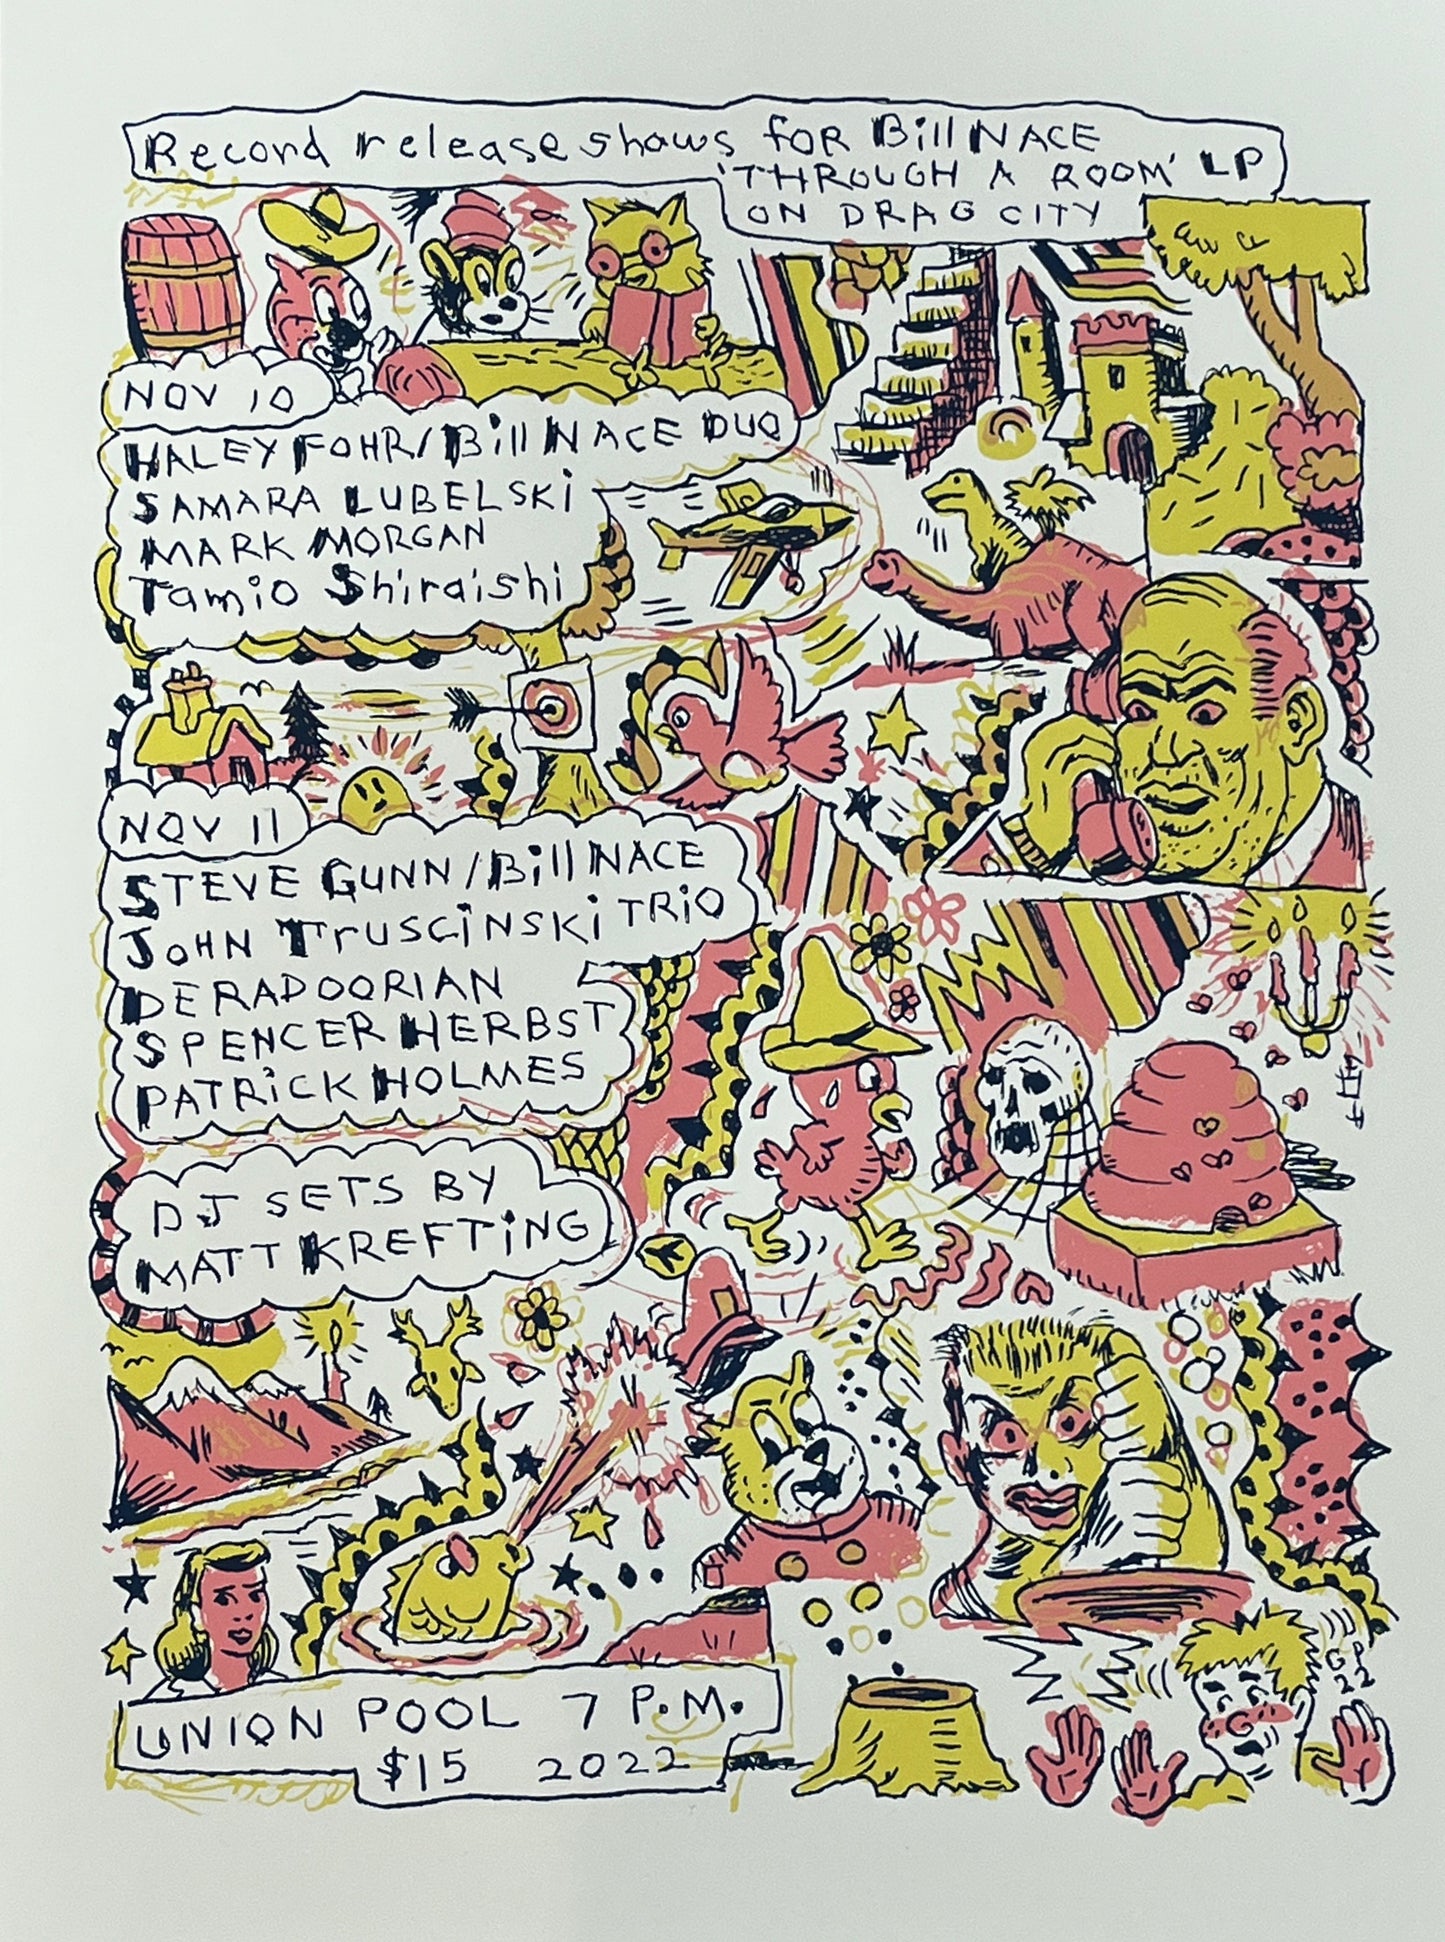 Record release shows for Bill NACE
'THROUGH A ROOM' LP
ON DRAG CITY
NOV 10
HALEY FOHR/Bill NACE DUO
SAMARA LUBELSKi
MARK MORGAN
Tamio Shiraishi
NOV 11
STEVE GUNN/Bill NACE
JOHN TrUSCiNSKi TRiO
DERADOORIAN
SPENCER HERBST
PATRiCK HOLMES
DJ SETS BY
MATT KREFTiNG
UNION POOL 7 P.M.
$15 2022
GP
22